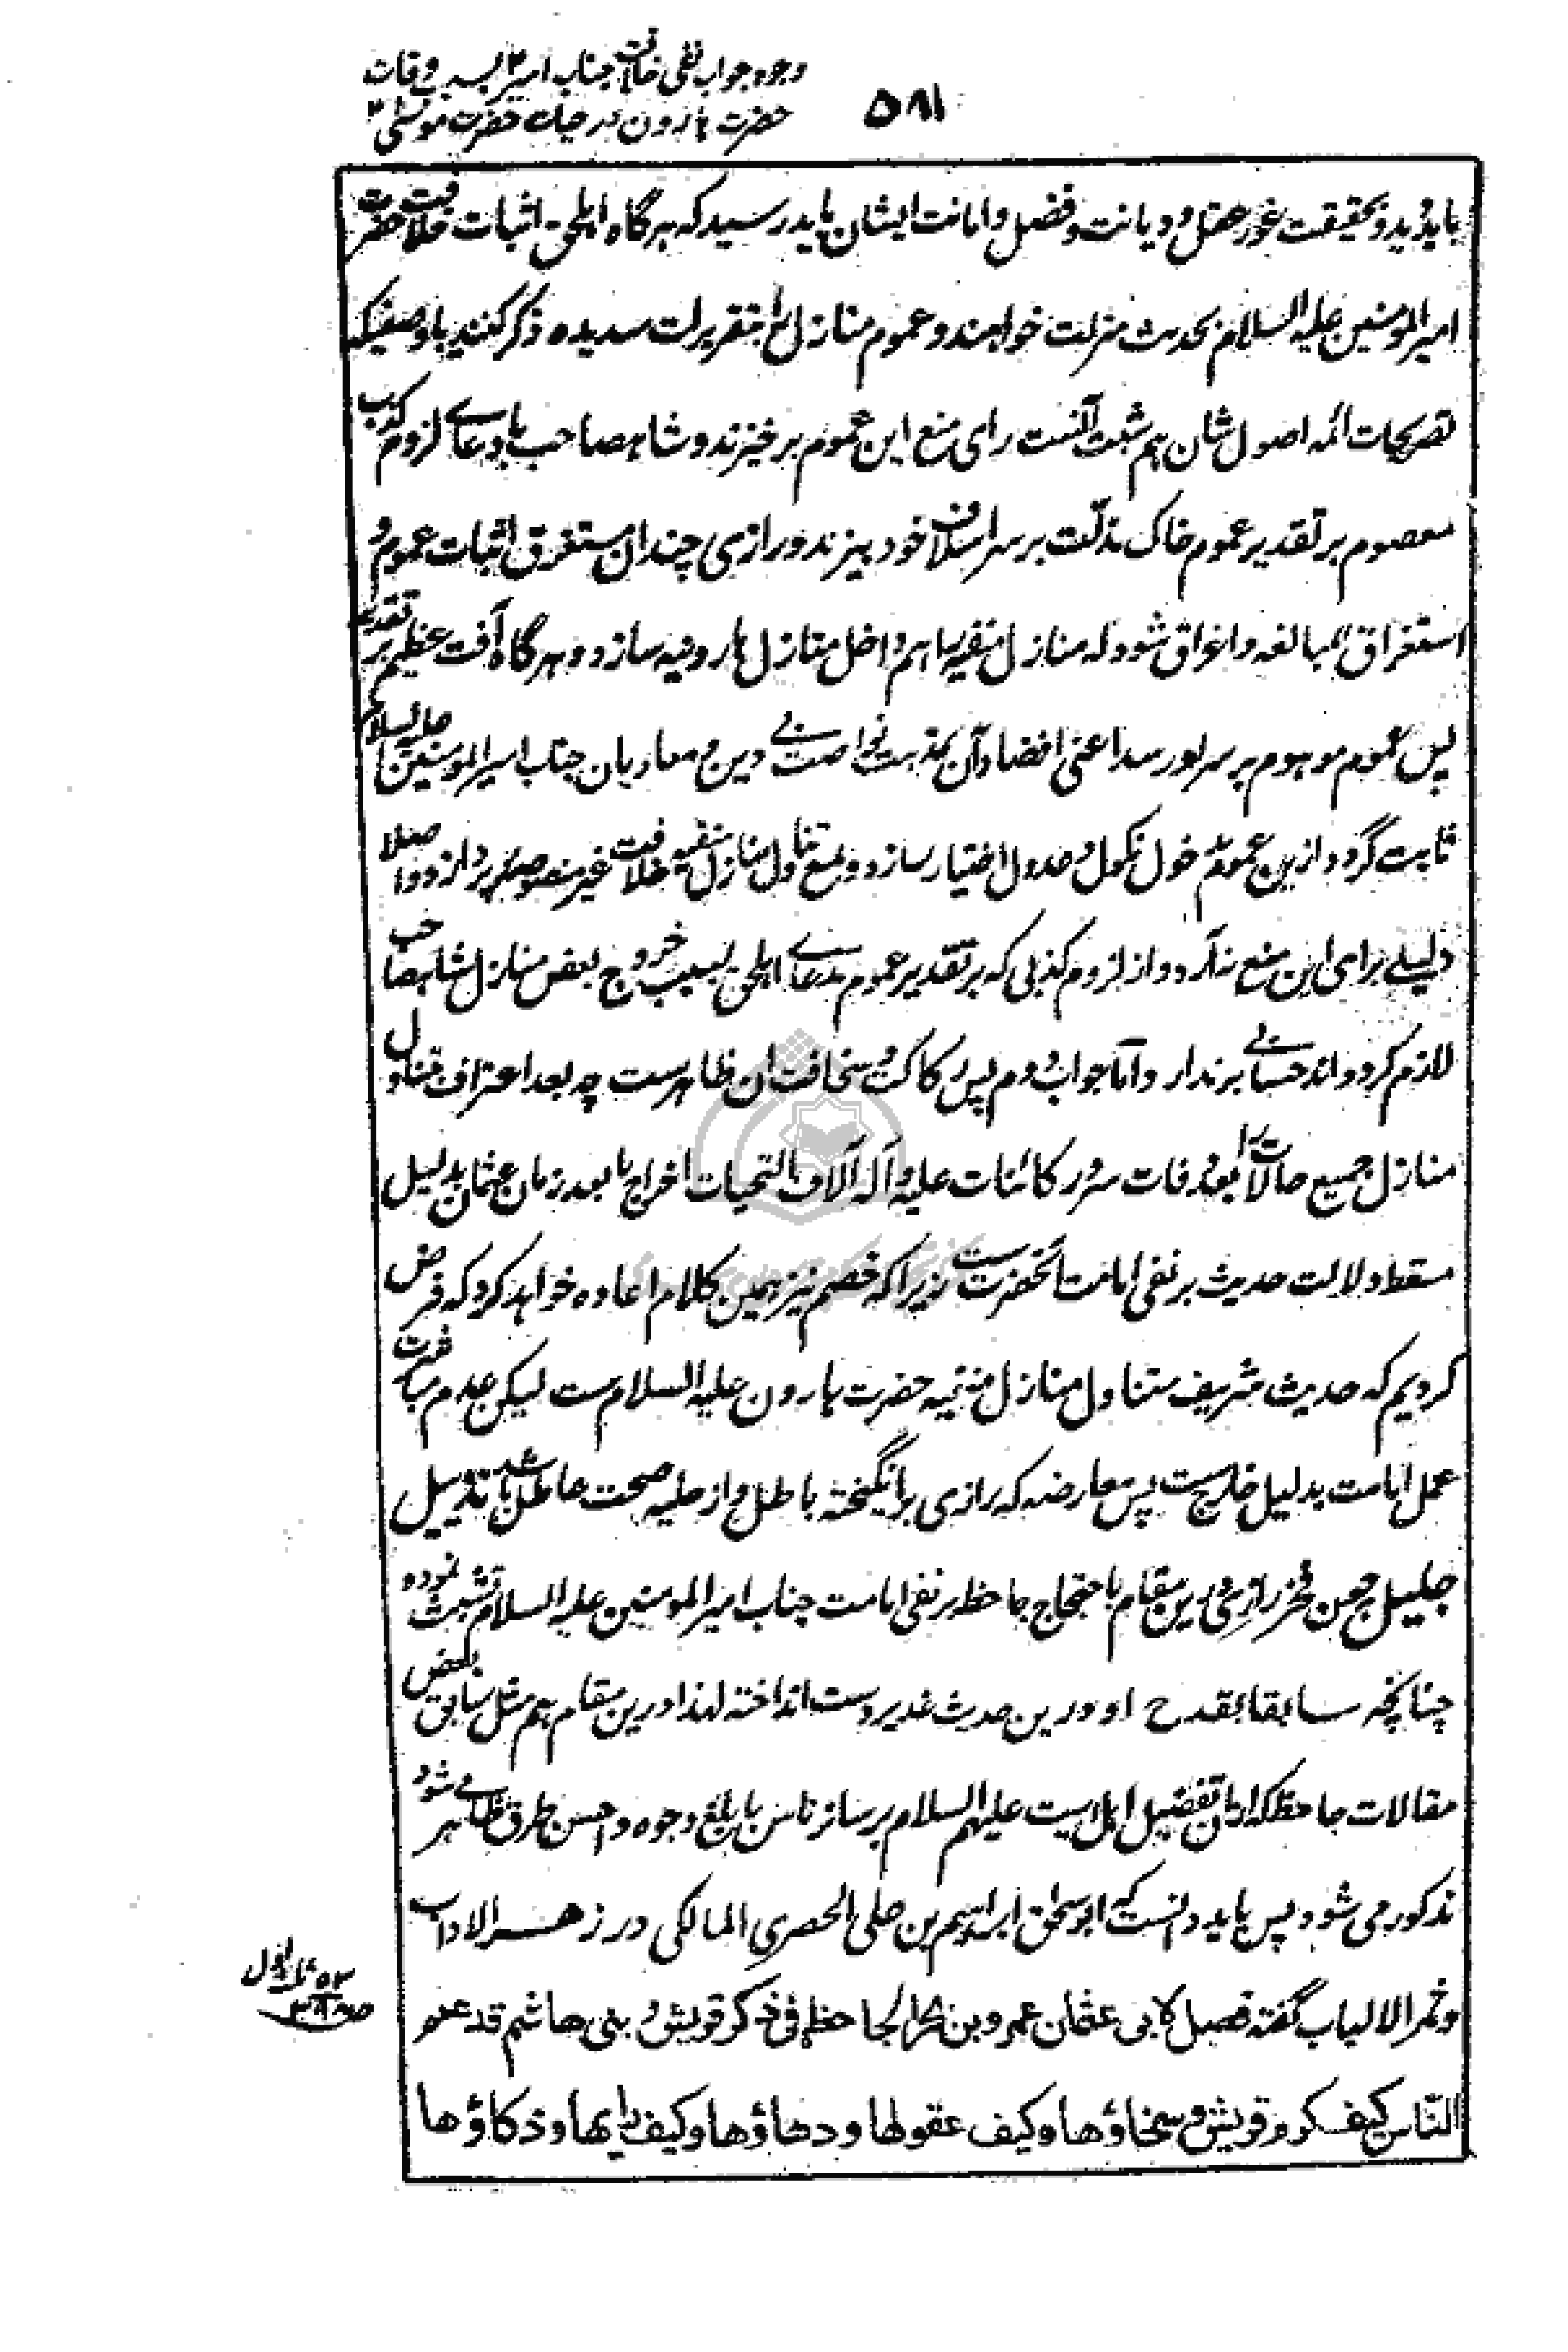 وجوه جواب نفی خلافت جناب امیر۴ بسبب وفات
حضرت هارون در حیات حضرت موسی۴
۵۸۱
باید دید و بحقیقت غور عقل و دیانت و فضل و امانت ایشان باید رسید که هر گاه اهلحق اثبات خلافت حضرت
امیرالمومنین علیه السلام بحدیث منزلت خواهند و عموم منازل را بتقریرات سدیده ذکر کنند با وصفیکه
تصریحات ائمه اصول شان هم مثبت آنست برای منع این عموم برخیزند و شاهصاحب بادعاے لزوم کذب
معصوم بر تقدیر عموم خاک مذلّت بر سر اسلاف خود بیزند و رازی چندان مستغرق اثبات عموم و
استغراق بمبالغه و اغراق شود که منازل منفیه را هم داخل منازل هارونیه سازد و هر گاه آفت عظیم بر تقدیر
پس عموم موهوم بر سر او رسد اعنی افضاء آن بمذمت نواصب بے دین و معاویان جناب امیرالمومنین علیه السلام
ثابت گردد ازین عموم خول نکول و عدول اختیار سازد و بمنع تناول منازل منفیه خلافت غیر منصوصه پردازد و اصلا
دلیلے برای این منع نذکرد و از لزوم کذبی که بر تقدیر عموم بدعاے اهلحق بسبب خروج بعض منازل شاهصاحب
لازم کرده اند حسابے بر ندارد و اما جواب دوم پس رکاکت و سخافت ان ظاهرست چه بعد اعتراف تناول
منازل جمیع حالات را بعد وفات سرور کائنات علیه و آله آلاف التحیات اخراج ما بعد زمان عثمان بدلیل
مسقط دلالت حدیث بر نفی امامت آنحضرت ست زیرا که خصم نیز همین کلام اعاده خواهد کرد که فرض
کردیم که حدیث شریف متناول منازل منفیه حضرت هارون علیه السلام ست لیکن عدم مباشرت
عمل امامت بدلیل خارج ست پس معارضه که رازی برانگیخته باطل و از حلیه صحت عاطل باشد تذییل
جلیل چون فخر رازی درین مقام باحتجاج جاحظ بر نفی امامت جناب امیر المومنین علیه السلام تشبث نموده
چنانچه سابقا بقدح او درین حدیث غدیر دست انداخته لهذا درین مقام هم مثل سابق بعض
مقالات جاحظ که ازان تفضیل اهلبیت علیهم السلام بر سائر ناس بابلغ وجوه و احسن طرق ظاهر می شود
مذکور می شود پس باید دانست که ابو اسحق ابراهیم بن علی الحصری المالکی در زهر الاداب
و ثمر الالباب گفته فصل لابی عثمان عمرو بن بحر الجاحظ فی ذکر قریش و بنی هاشم قد عرف
النّاس کیف کرم قریش و سخاؤها و کیف عقولها و دهاؤها و کیف رایها و ذکاؤها